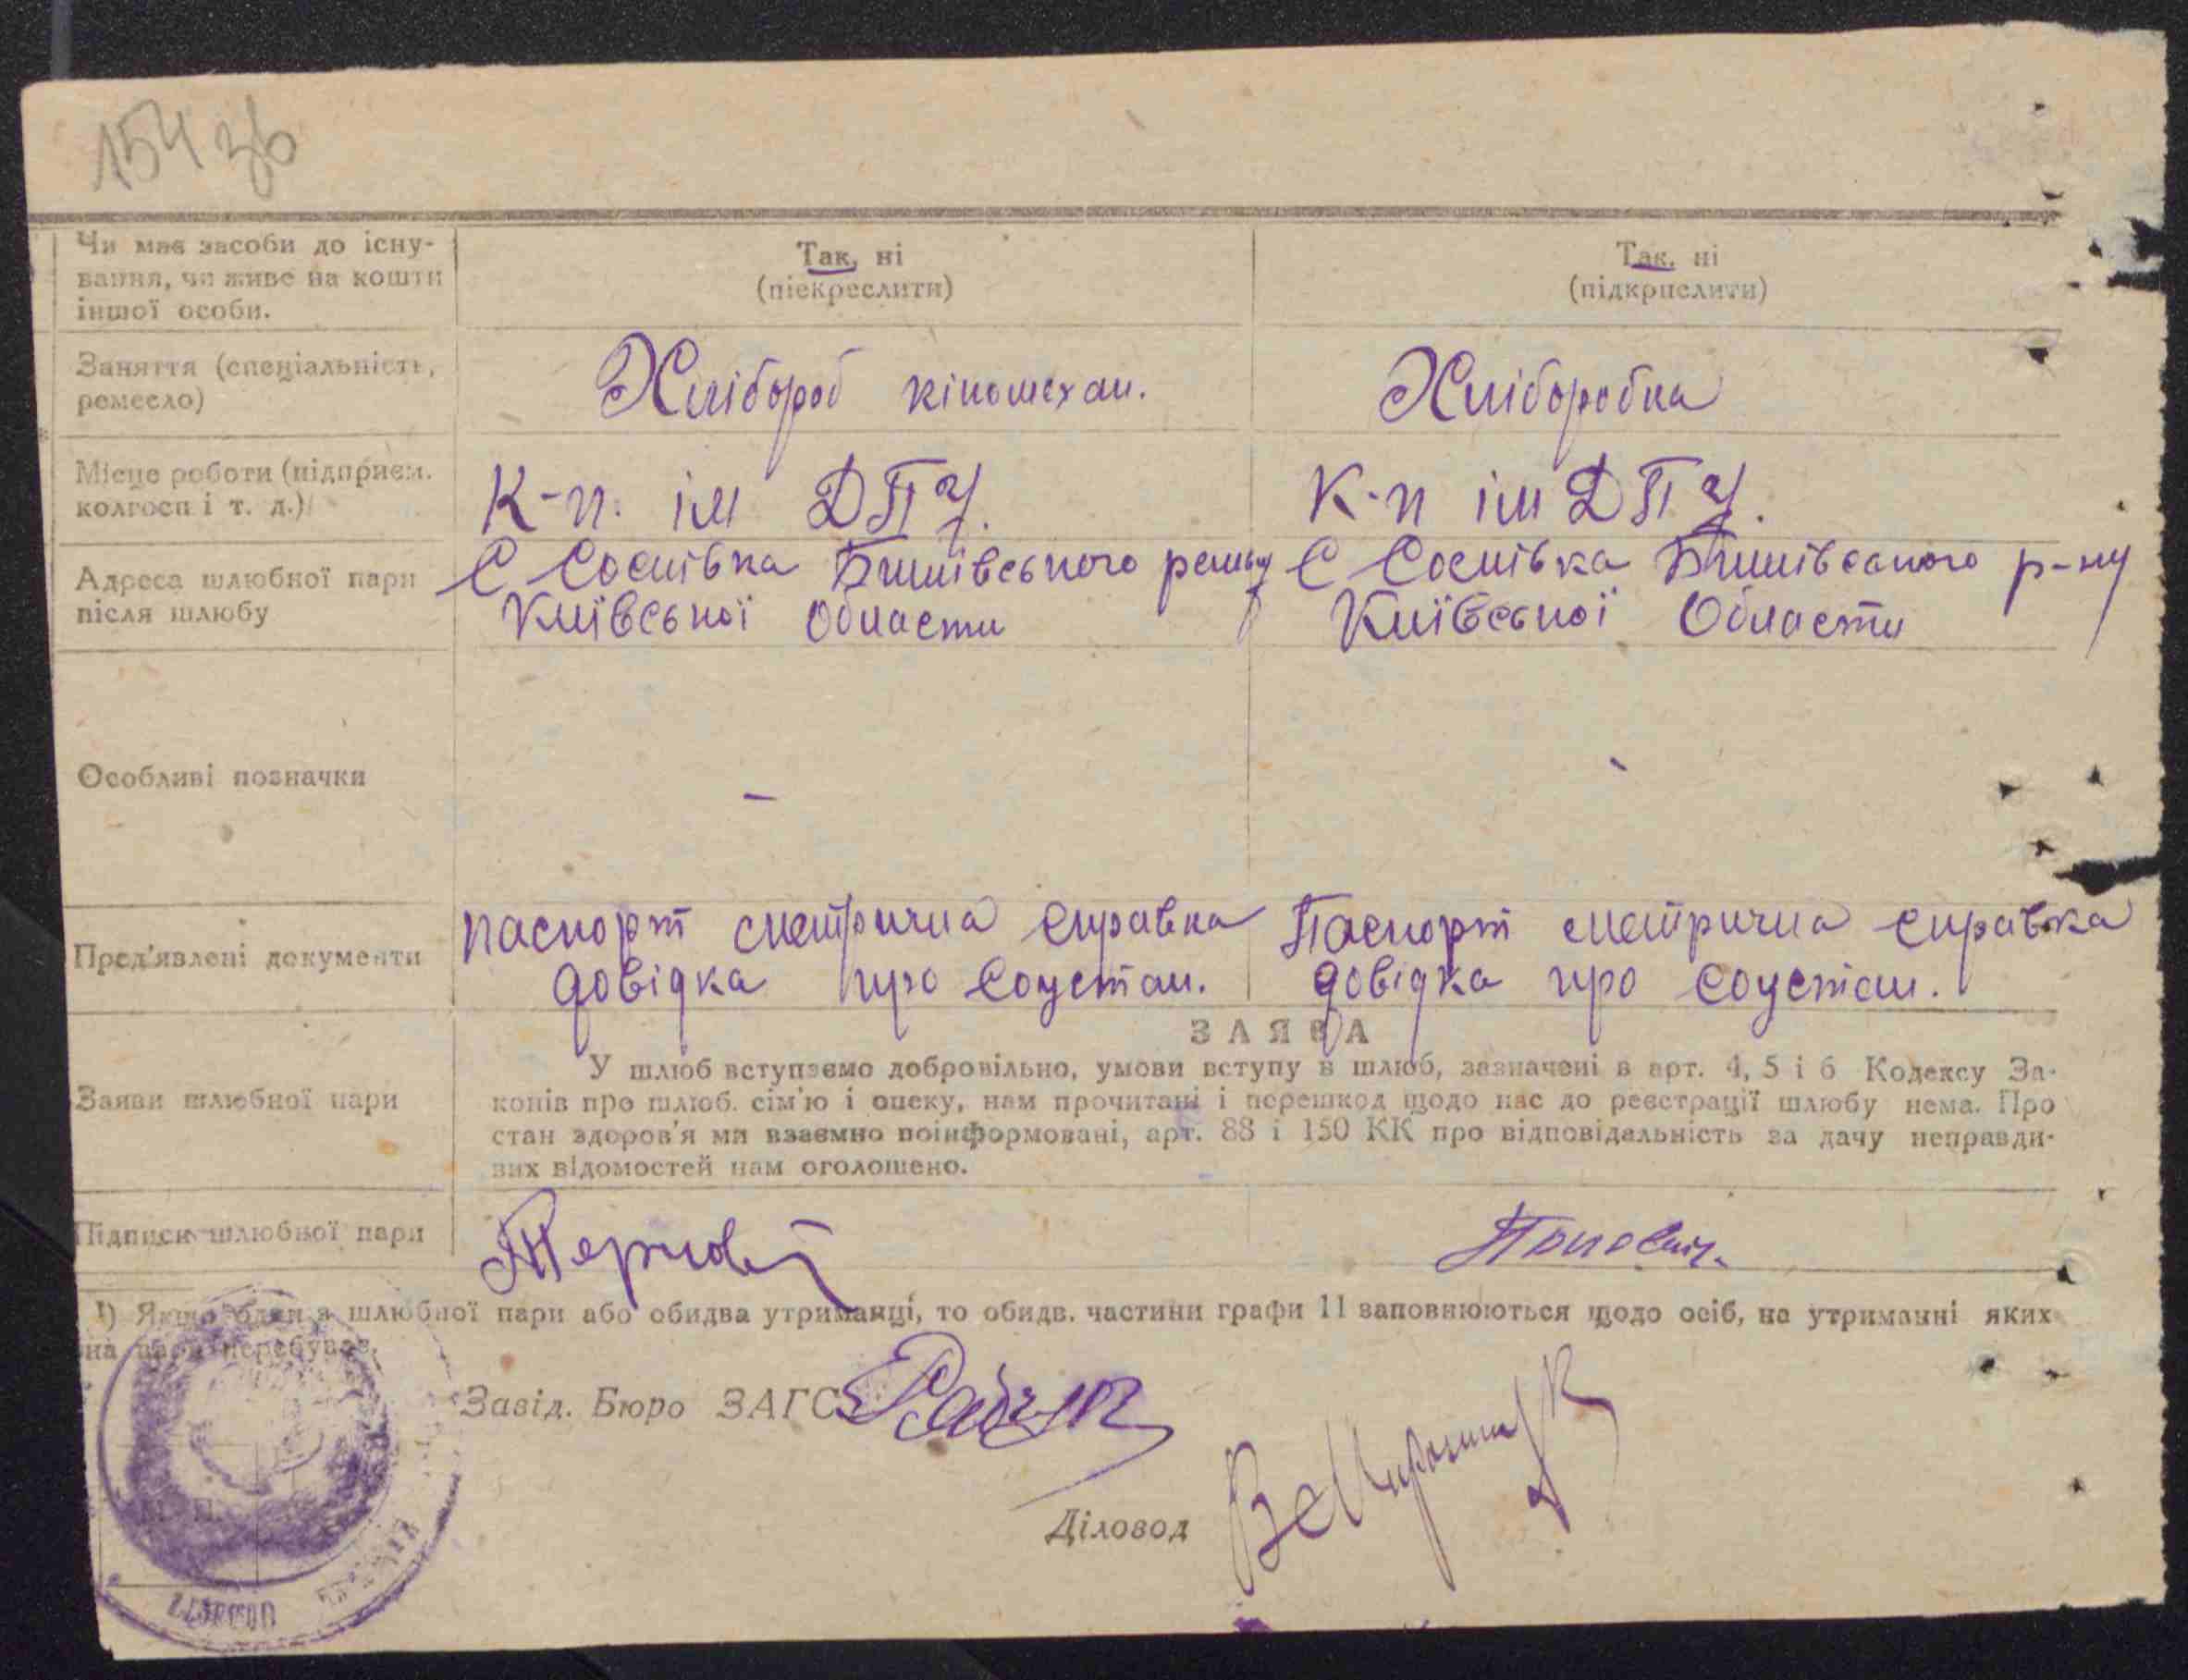 154 зв
Чи має засоби до існу-
вання, чи живе на кошти
іншої особи.
Так, ні
(піекреслити)
Так, ні
(підкрислити)
Заняття (спеціальність,
ремесло)
Хлібороб кіномехан.
Хліборобка
Місце роботи (підприєм.
колгосп і т. д.)
К-п. ім ДПУ.
К-п ім ДПУ.
Адреса шлюбної пари
після шлюбу
С Соснівка Бишівського
Київської Области
С Соснівка Бишівського р-ну
Київської Области
Особливі позначки
-
-
Пред'явлені документи
паспорт метрична справка
довідка про соцстан.
Паспорт метрична справка
довідка про соцстан.
Заяви шлюбної пари
ЗАЯВА
У шлюб вступаємо добровільно, умови вступу в шлюб, зазначені в арт. 4, 5 і 6 Кодексу За-
конів про шлюб. сім'ю і опеку, нам прочитані і перешкод щодо нас до реєстрації шлюбу нема. Про
стан здоров'я ми взаємно поінформовані, арт. 88 і 150 КК про відповідальність за дачу неправди-
вих відомостей нам оголошено.
Підписи шлюбної пари
Терновий
Попович.
1) Якщо один з шлюбної пари або обидва утриманці, то обидв. частини графи 11 заповнюються щодо осіб, на утриманні яких
на пара перебуває.
Завід. Бюро ЗАГС
М. П.
Діловод